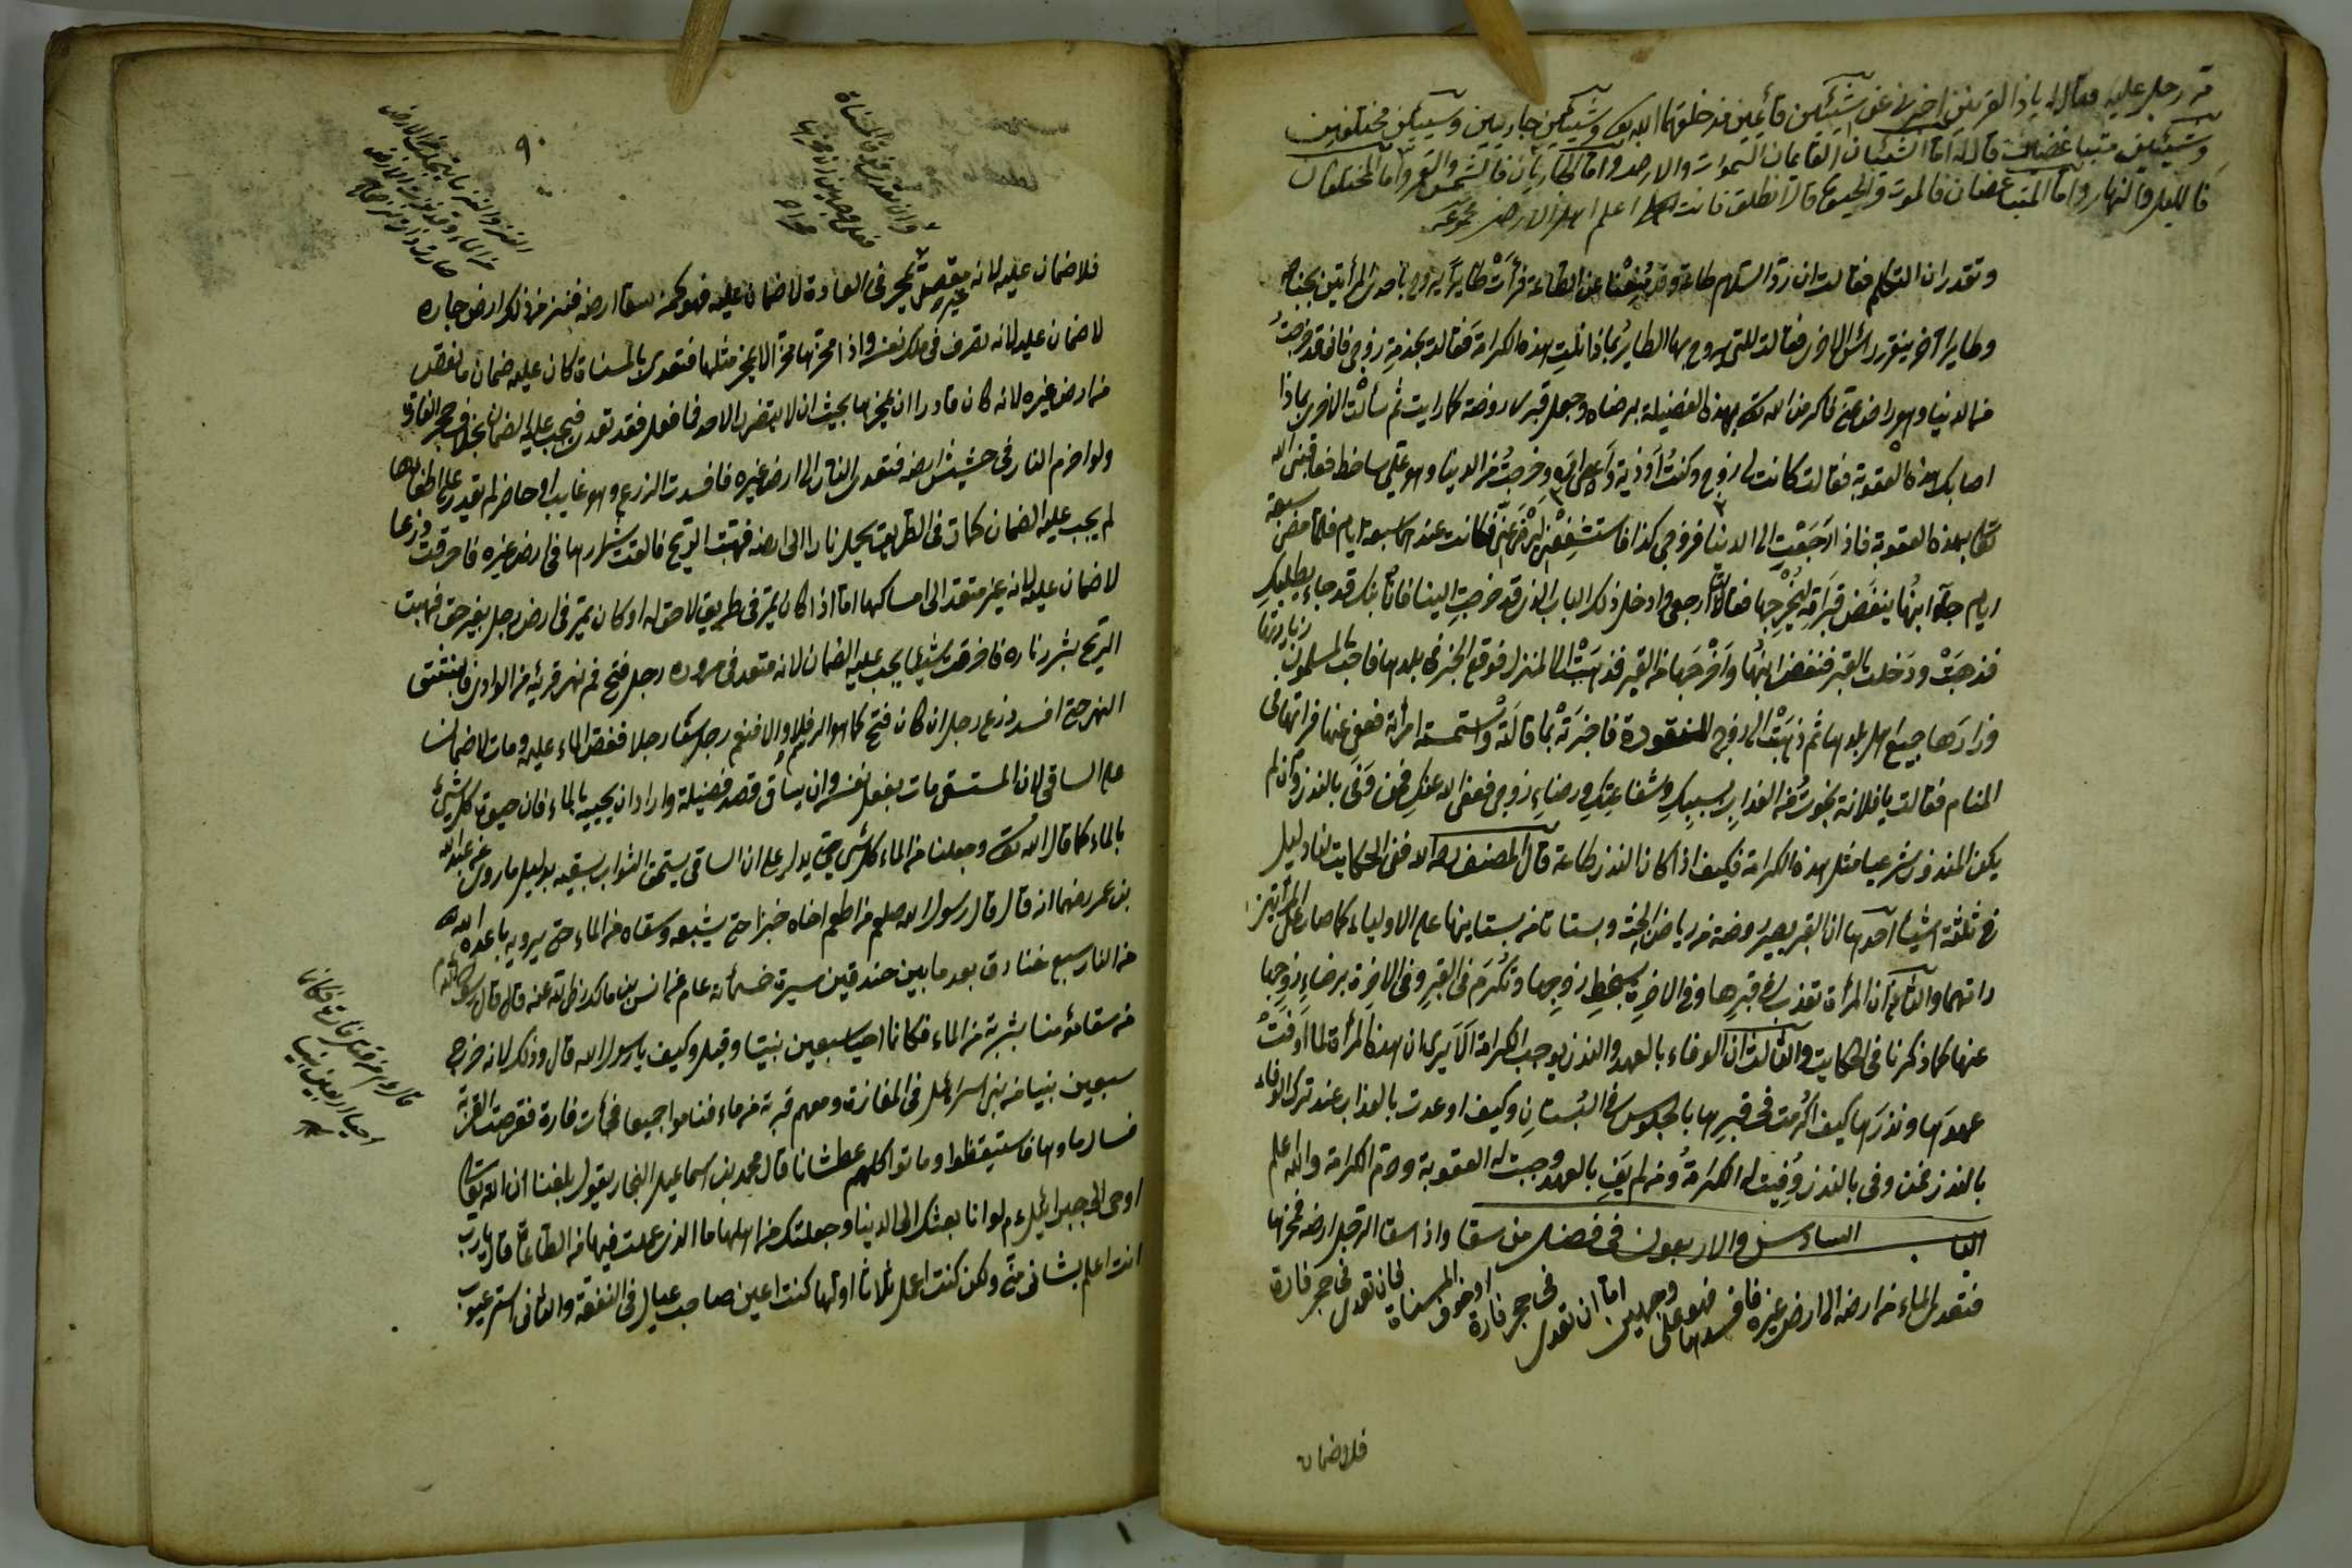 مر رجل عليه فقال له يا ذا القرنين اخبرني عن شيئين قائمين قد خلقهما الله تعالى وشيئين جاريين وشيئين مختلفين
وشيئين متباغضين قال له اما الشيئان القايمان السموات والارض واما الجاريان فالشمس والقمر واما المختلفان
فالليل والنهار واما المتباغضان فالموت والحيوة قال انطلق فانت اعلم اهل الارض
وتقدران التكلم فقالت ان رد السلام طاعة وقد منعنا عن الطاعة فرأت طايرا يروح باحدى المرأتين بجناحه
وطايرا آخر ينقر رأس الاخرى فقالت للتي يروح بها الطاير بماذا نلت هذه الكرامة فقالت بخدمة زوجي فاني قد خرجت
من الدنيا وهو راض عني فاكرمني الله تعالى بهذه الفضيلة برضاه وجعل قبري روضة كما رايت ثم سألت الاخرى بماذا
اصابك هذه العقوبة فقالت كانت لي زوج وكنت اوذيه وخرجت من الدنيا وهو علي ساخط فعاقبني الله
تعالى بهذه العقوبة فاذا رجعت الى الدنيا فزوجي كذا فاستشفعي ليرضى عني فكانت عندهما سبعة ايام فلما مضى سبعة
ايام جاء ابنها ينقض قبرامه ليخرجها فقالتا ارجعي وادخلي ذلك الباب الذي قد خرجت الينا فان ابنك قد جاء يطلبك
فذهبت ودخلت بالقبر فنقض ابنها واخرجها من القبر فذهبت الى المنزل فوقع الخبر في بلدها فاجتمع المسلمون زيارتها
وزارها جميع اهل بلدها ثم ذهبت الى زوج المنقودة فاخبرته بما قالت امرأته فعفى عنها فرأتها في
المنام فقالت يا فلانة نجوت من العذاب بسببك وشفاعتك ورضاء زوجي فعفى الله عنك فمن وفى بالنذر وان لم
يكن المنذور شرعيا مثل هذه الكرامة فكيف اذا كان النذر طاعة قال المصنف رحمه الله ففي الحكايت لنا دليل
في ثلثة اشياء احدها ان القبر يصير روضة من رياض الجنة وبستانا من بساتينها على الاولياء كما صار على المرأتين
راتهما والثاني ان المرأة تعذب في قبرها وفي الاخرة بسخط زوجها وتكرم في القبر وفي الاخرة برضاء زوجها
عنها كما ذكرنا في الحكايت والثالث ان الوفاء بالعهد والنذر يوجب الكرامة الا يرى ان هذه المرأة لما اوفت
عهدها ونذرها كيف اكرمت في قبرها بالجلوس في البستان وكيف اوعدت بالعذاب عند ترك الوفاء
بالنذر فمن وفى بالنذر وفيت له الكرامة ومن لم يف بالعهد وجبت له العقوبة وحرم الكرامة والله اعلم
الباب السادس والاربعون في فضل من سقا واذا سقا الرجل ارضه فمخرها
فتعدى الماء من ارضه الى ارض غيره فافسدها فهو على وجهين اما ان تعدى في جحر فارة او خرق المسناة فان تعدى في جحر فارة
فلا ضمان
٩٠
فلا ضمان عليه لانه غير مقصر يجري في العادة لا ضمان عليه فهو كمن سقا ارضه فنز من ذلك ارض جاره
لا ضمان عليه لانه تصرف في ملك نفسه واذا مخرها مخرا لا يمخر مثلها فتعدى بالمسناة كان عليه ضمان ما نقص
من ارض غيره لانه كان قادرا ان يمخرها بحيث ان لا يتضرر لاحد فما فعل فقد تعدى فيجب عليه الضمان بخلاف جحر الفارة
ولو اضرم النار في حشيش ارضه فتعدى النار الى ارض غيره فافسدت الزرع وهو غايب او حاضر لم يقدر على اطفائها
لم يجب عليه الضمان كمار في الطريق يحمل نارا الى ارضه فهبت الريح فالقت شررها في ارض غيره فاحرقت زرعا
لا ضمان عليه لانه غير متعد الى امساكها اما اذا كان يمر في طريق لا حق له او كان يمر في ارض رجل بغير حق فهبت
الريح بشرر ناره فاحرقت شيئا يجب عليه الضمان لانه متعد في مروره رجل فتح فم نهر قرية من الوادي فانبثق
النهر حتى افسد زرع رجل ان كان فتح كما هو الرسم فلا والا فنعم رجل سقا رجلا فغص الماء عليه ومات لا ضمان
على الساقي لان المستقي مات بفعل نفسه وان ساقى قصد فضيلة واراد ان يحييه بالماء فان حيوة كل شيء
بالماء كما قال الله تعالى وجعلنا من الماء كل شيء حي يدل على ان الساقي يستحق الثواب بسقيه بدليل ما روي عن عبد الله
بن عمر رضهما انه قال قال رسول الله صلعم من اطعم اخاه خبزا حتى يشبعه وسقاه من الماء حتى يرويه باعده الله
من النار سبع خنادق بعد ما بين خندقين مسيرة خمسمائة عام عن انس بن مالك رضي الله عنه قال قال رسول الله
من سقا مؤمنا شربة من الماء فكانما احيا سبعين نبيا وقيل وكيف يا رسول الله قال وذلك لانه خرج
سبعين نبيا من بني اسرائل في المفازة ومعهم قربة من ماء فناموا جميعا فجأت فارة فقرضت القربة
فسال ماؤها فاستيقظوا وماتوا كلهم عطشانا قال محمد بن اسماعيل البخاري يقول بلغنا ان الله تعالى
اوحى الى جبرائيل ع م لو انا بعثتك الى الدنيا وجعلتك من اهلها ما الذي عملت فيها من الطاعة قال يا رب
انت اعلم بشاني مني ولكن كنت اعمل ثلاثا اولها كنت اعين صاحب عيال في النفقة والثاني استر عيوب